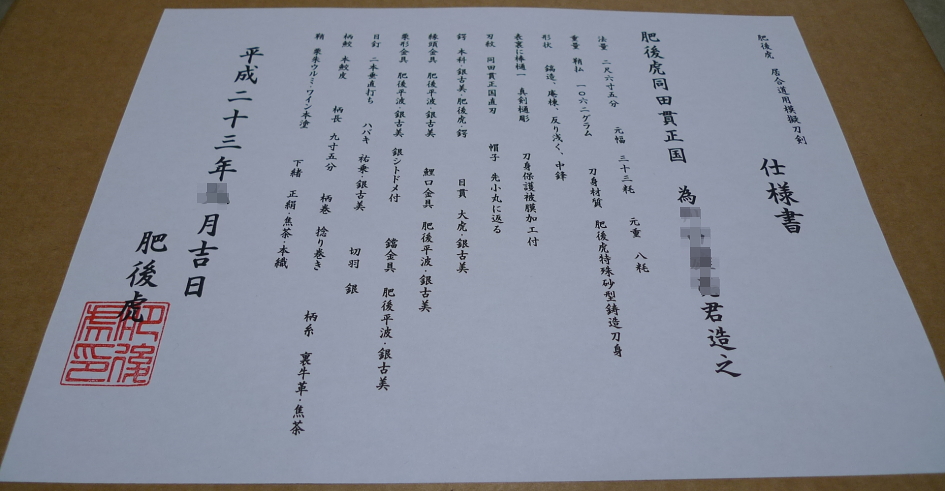 肥後虎 居合道用模擬刀剣
仕様書
肥後虎同田貫正国 為 君造之
法量 二尺六寸五分 元幅 三十三粍 元重 八粍
重量 鞘払 一〇六二グラム 刀身材質 肥後虎特殊砂型鋳造刀身
形状 鎬造、庵棟、反り浅く、中鋒
表裏に棒樋一 真剣樋彫 刀身保護被膜加工付
刃紋 同田貫正国直刃 帽子 先小丸に返る
鍔 本科 銀古美・肥後虎 鍔 目貫 大虎・銀古美
縁頭金具 肥後平波・銀古美 鯉口金具 肥後平波・銀古美
栗形金具 肥後平波・銀古美 銀シトドメ付 鐺金具 肥後平波・銀古美
目釘 二本垂直打ち ハバキ 祐乗・銀古美 切羽 銀
柄鮫 本鮫皮 柄長 九寸五分 柄巻 捻り巻き 柄糸 裏牛革・焦茶
鞘 栗朱ウルミ・ワイン本塗 下緒 正絹・焦茶・本織
平成二十三年 月吉日
肥後虎
肥後虎印